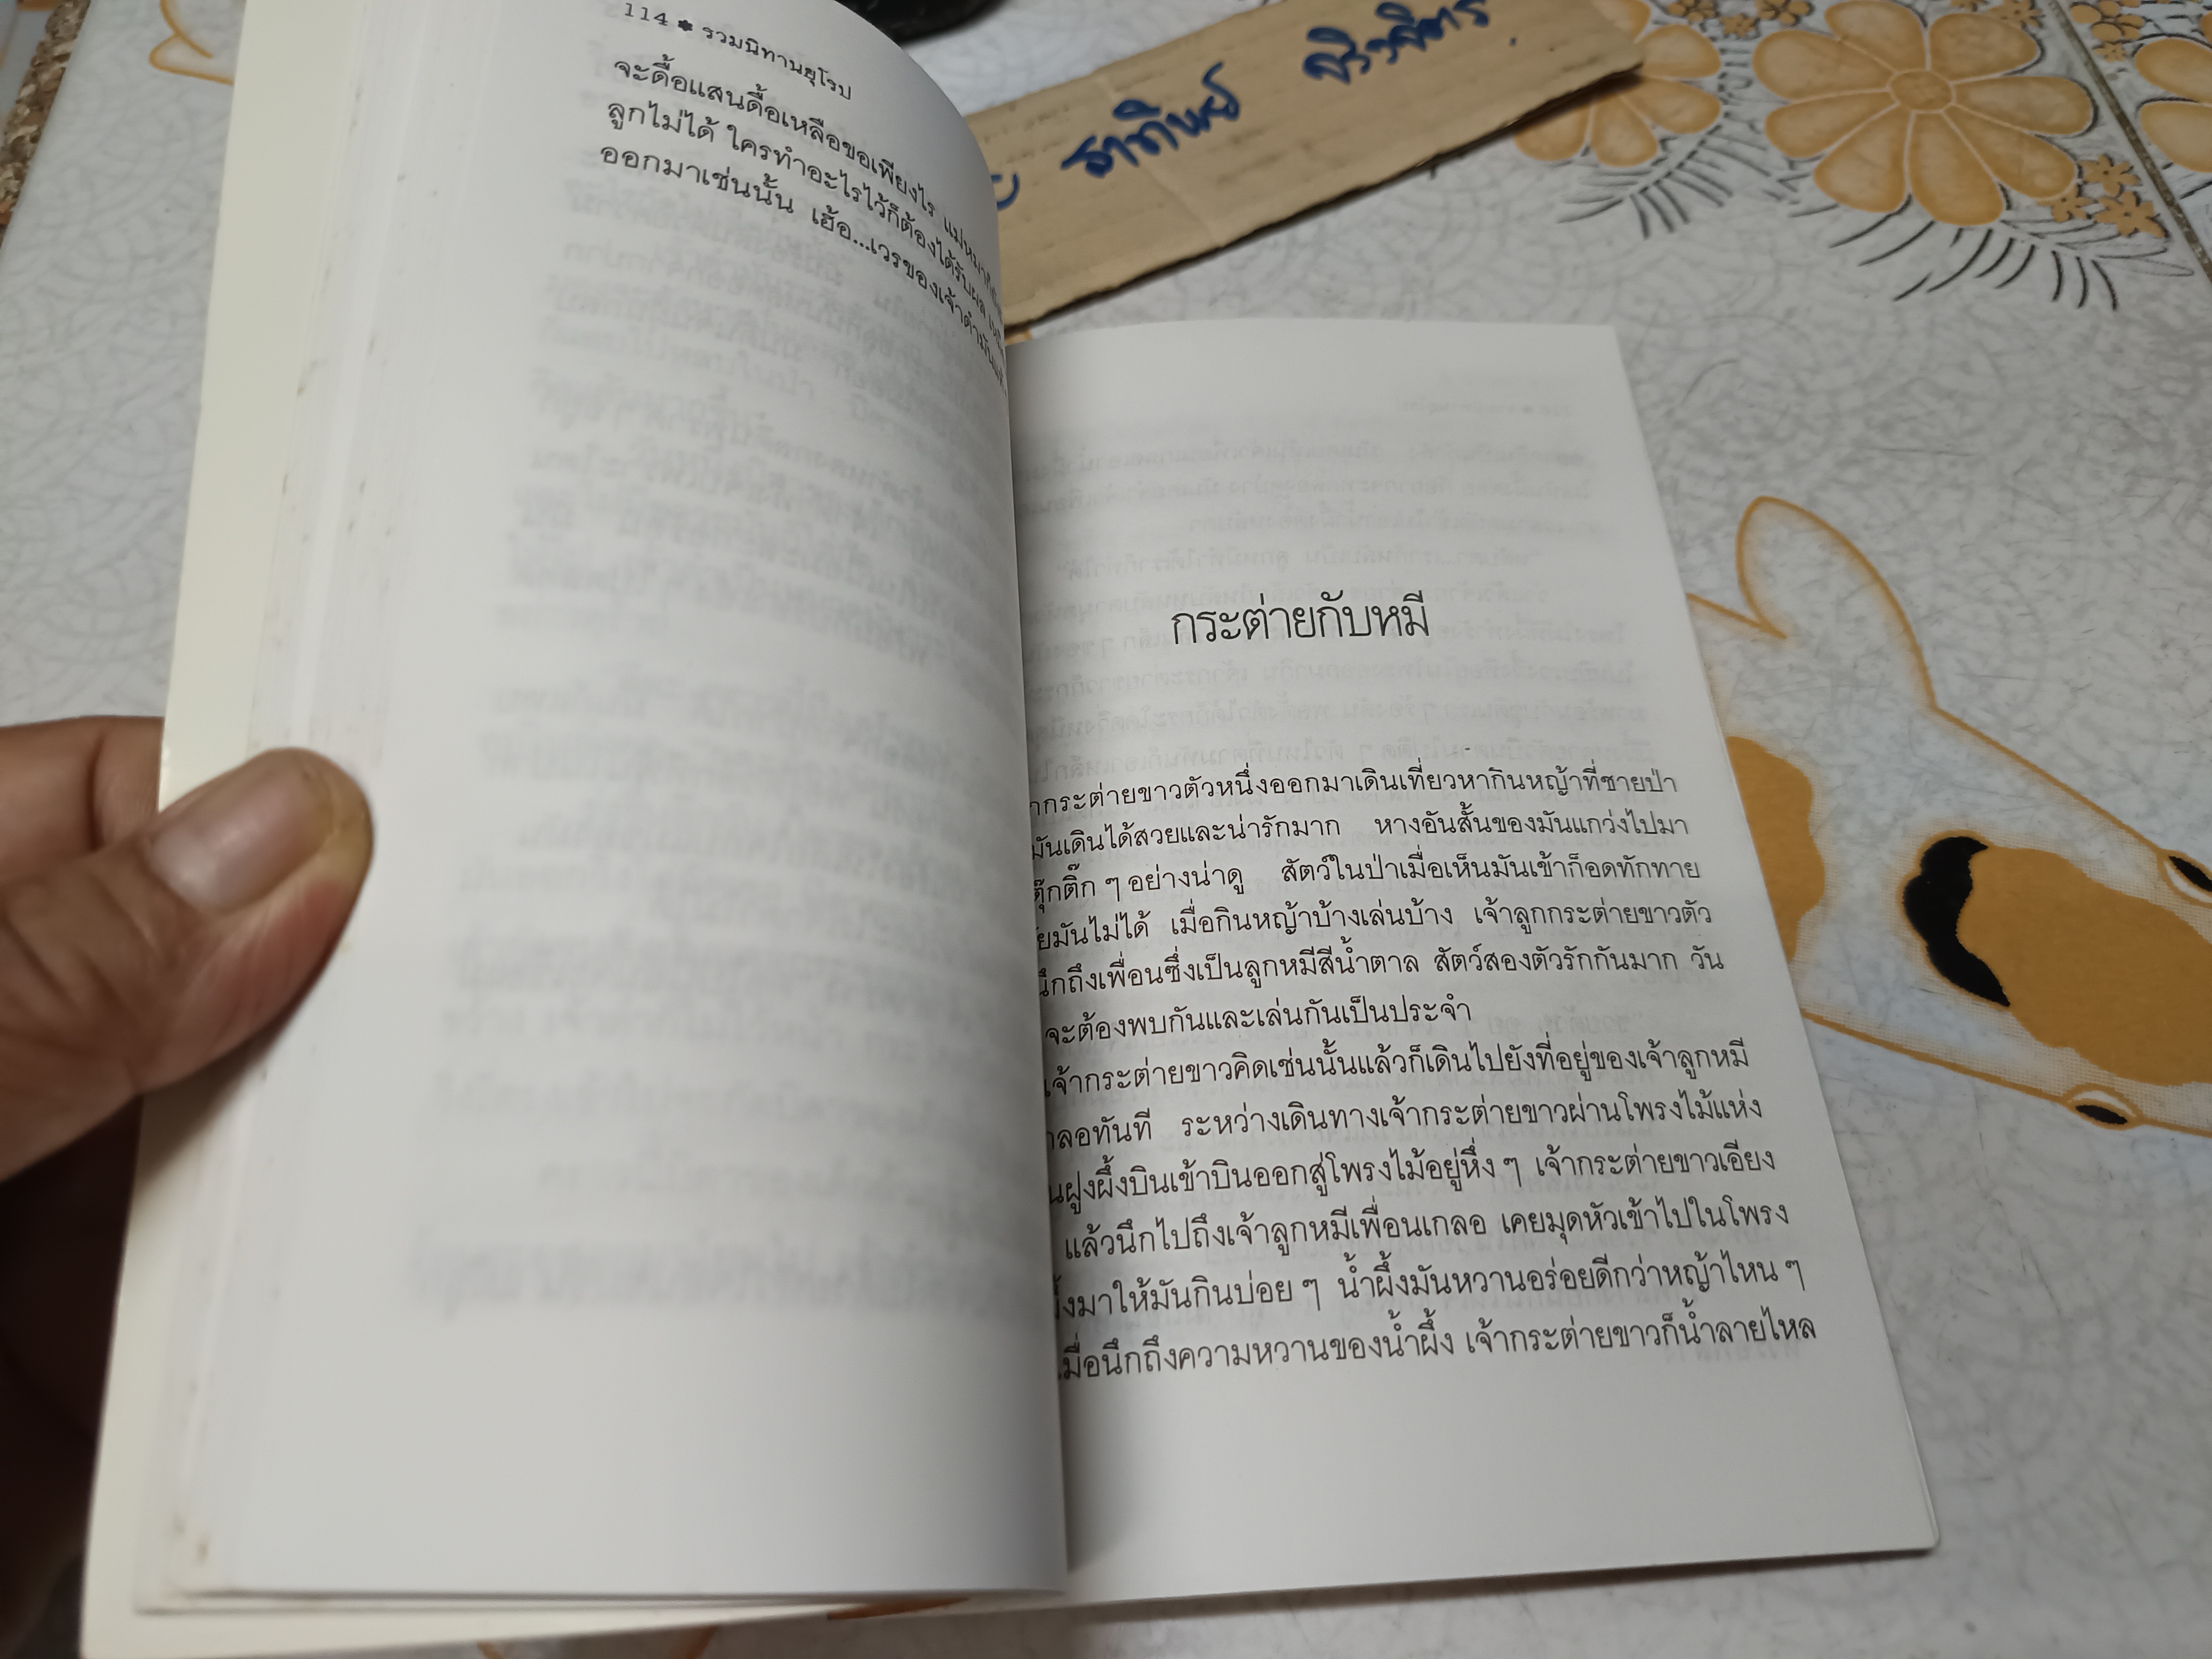 114 ✱ รวมนิทานยุโรป
จะดื้อแสนดื้อเหลือขอเพียงไร
ลูกไม่ได้ ใครทำอะไรไว้ก็ต้องได้รับผล
ออกมาเช่นนั้น เฮ้อ...เวรของเจ้าดำมัน
ธาทิพย์
กระต่ายกับหมี
กระต่ายขาวตัวหนึ่งออกมาเดินเที่ยวหากินหญ้าที่ชายป่า
มันเดินได้สวยและน่ารักมาก หางอันสั้นของมันแกว่งไปมา
ตุ๊กติ๊ก ๆ อย่างน่าดู สัตว์ในป่าเมื่อเห็นมันเข้าก็อดทักทาย
มันไม่ได้ เมื่อกินหญ้าบ้างเล่นบ้าง เจ้าลูกกระต่ายขาวตัว
นึกถึงเพื่อนซึ่งเป็นลูกหมีสีน้ำตาล สัตว์สองตัวรักกันมาก วัน
จะต้องพบกันและเล่นกันเป็นประจำ
เจ้ากระต่ายขาวคิดเช่นนั้นแล้วก็เดินไปยังที่อยู่ของเจ้าลูกหมี
ทันที ระหว่างเดินทางเจ้ากระต่ายขาวผ่านโพรงไม้แห่ง
ฝูงผึ้งบินเข้าบินออกสู่โพรงไม้อยู่หึ่ง ๆ เจ้ากระต่ายขาวเอียง
แล้วนึกไปถึงเจ้าลูกหมีเพื่อนเกลอ เคยมุดหัวเข้าไปในโพรง
มาให้มันกินบ่อย ๆ น้ำผึ้งมันหวานอร่อยดีกว่าหญ้าไหน ๆ
เมื่อนึกถึงความหวานของน้ำผึ้ง เจ้ากระต่ายขาวก็น้ำลายไหล